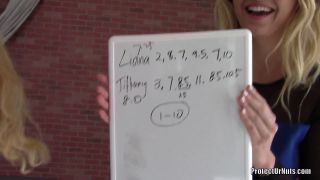 7.75
Lidna 2, 8, 7, 9.5, 7, 10
Tiffany 3, 7.85, 11, 8.5, 10.5
8.0
1-10
ProtectUrNuts.com